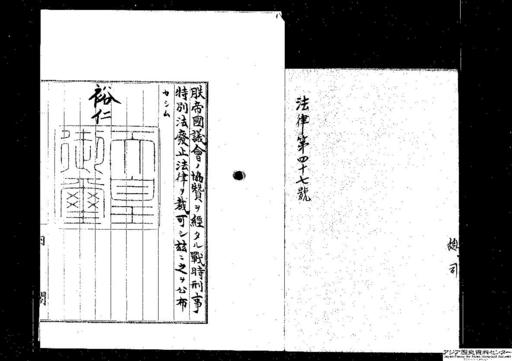 法律第四十七號
朕帝國議會ノ協贊ヲ經タル戰時刑事
特別法廢止法律ヲ裁可シ茲ニ之ヲ公布
セシム
裕仁
天皇
御璽
內閣
アジア歴史資料センター